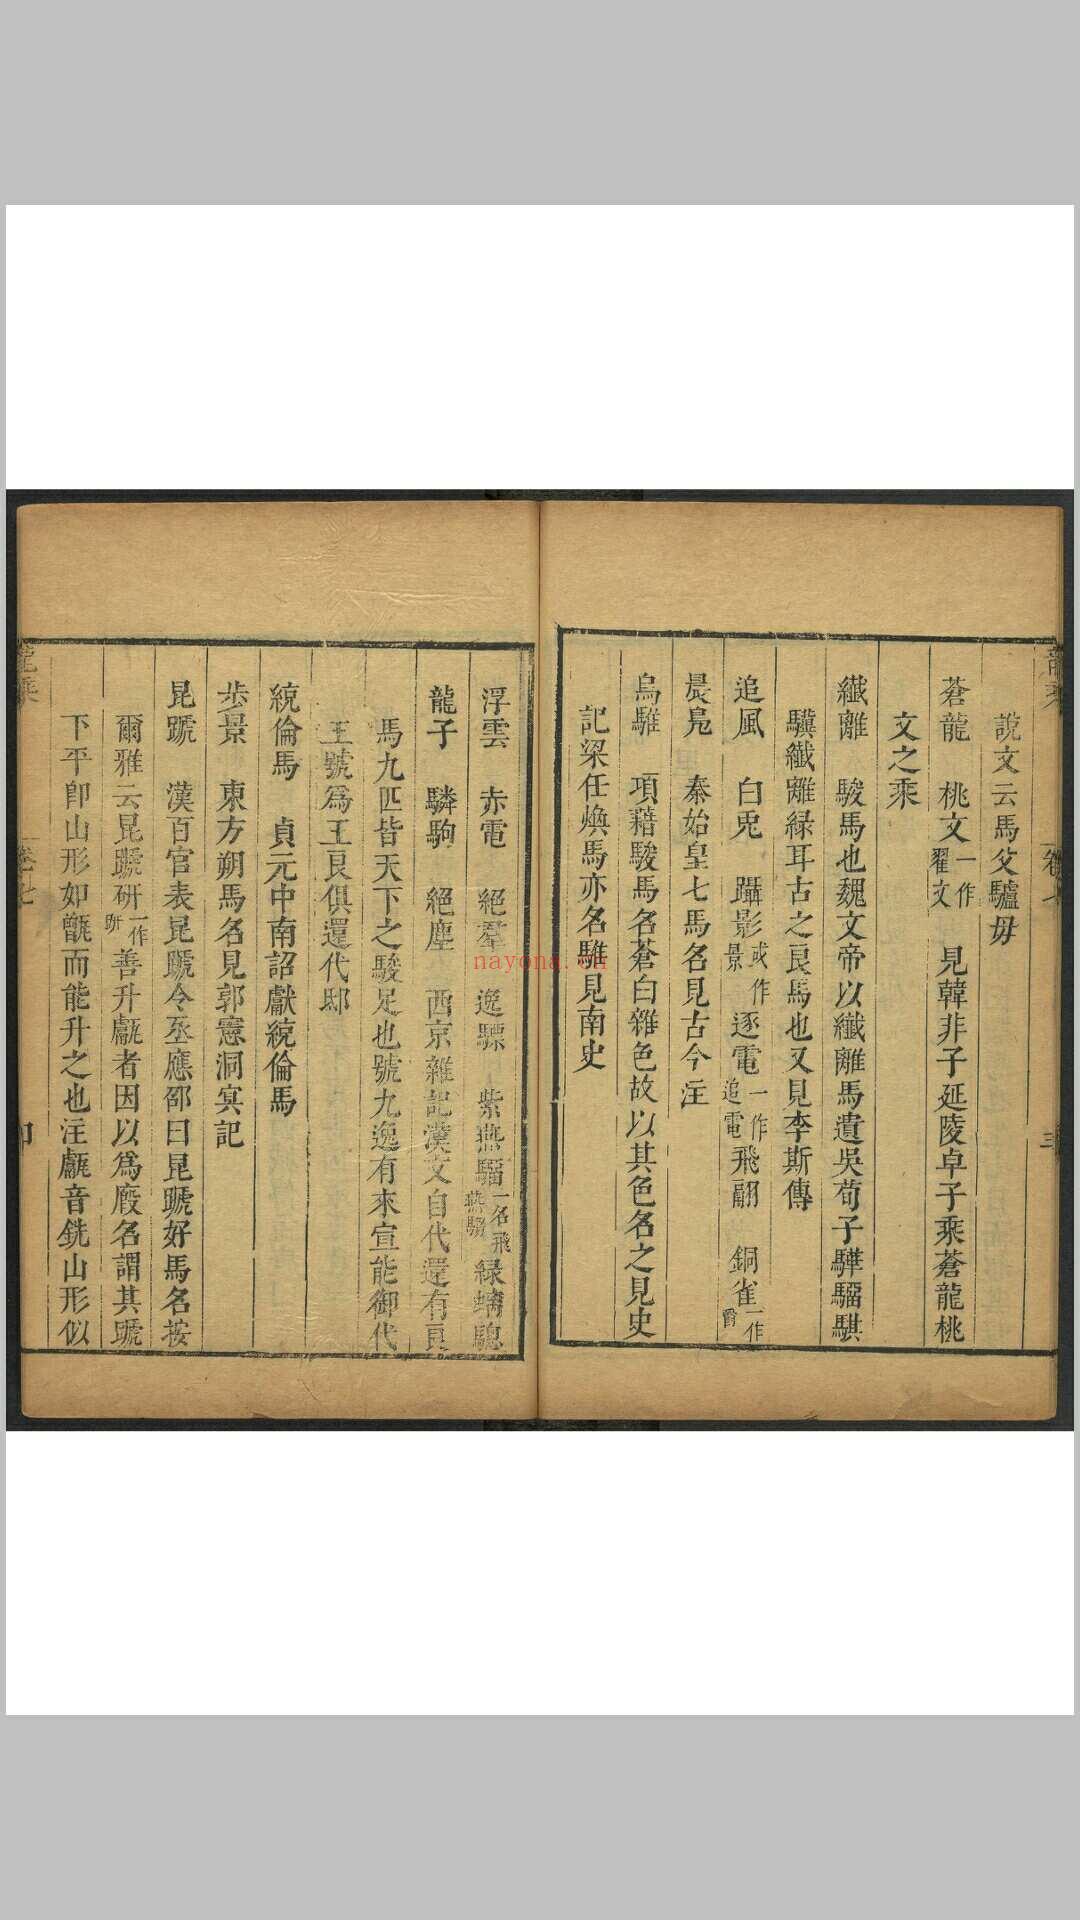 說文云馬父驢母
蒼龍 桃文一作翟文 見韓非子延陵卓子乘蒼龍桃
文之乘
纎離 駿馬也魏文帝以纎離馬遺吳荀子驊騮騏
驥纎離緑耳古之良馬也又見李斯傳
追風 白兎 躡影或作景 逐電一作追電 飛翮 銅雀一作爵
晨鳧 秦始皇七馬名見古今注
烏騅 項藉駿馬名蒼白雜色故以其色名之見史
記梁任煥馬亦名騅見南史
浮雲 赤電 絕羣 逸驃 紫燕騮一名飛燕騮 緑螭驄
龍子 驎駒 絕塵 西京雜記漢文自代還有良
馬九匹皆天下之駿足也號九逸有來宣能御代
王號爲王良俱還代邸
統倫馬 貞元中南詔獻統倫馬
歩景 東方朔馬名見郭憲洞冥記
昆蹏 漢百官表昆蹏令丞應邵曰昆蹏好馬名按
爾雅云昆蹏研一作趼善升甗者因以爲廄名謂其蹏
下平卽山形如甑而能升之也注甗音銑山形似
龍乘
卷七
nayona.cn